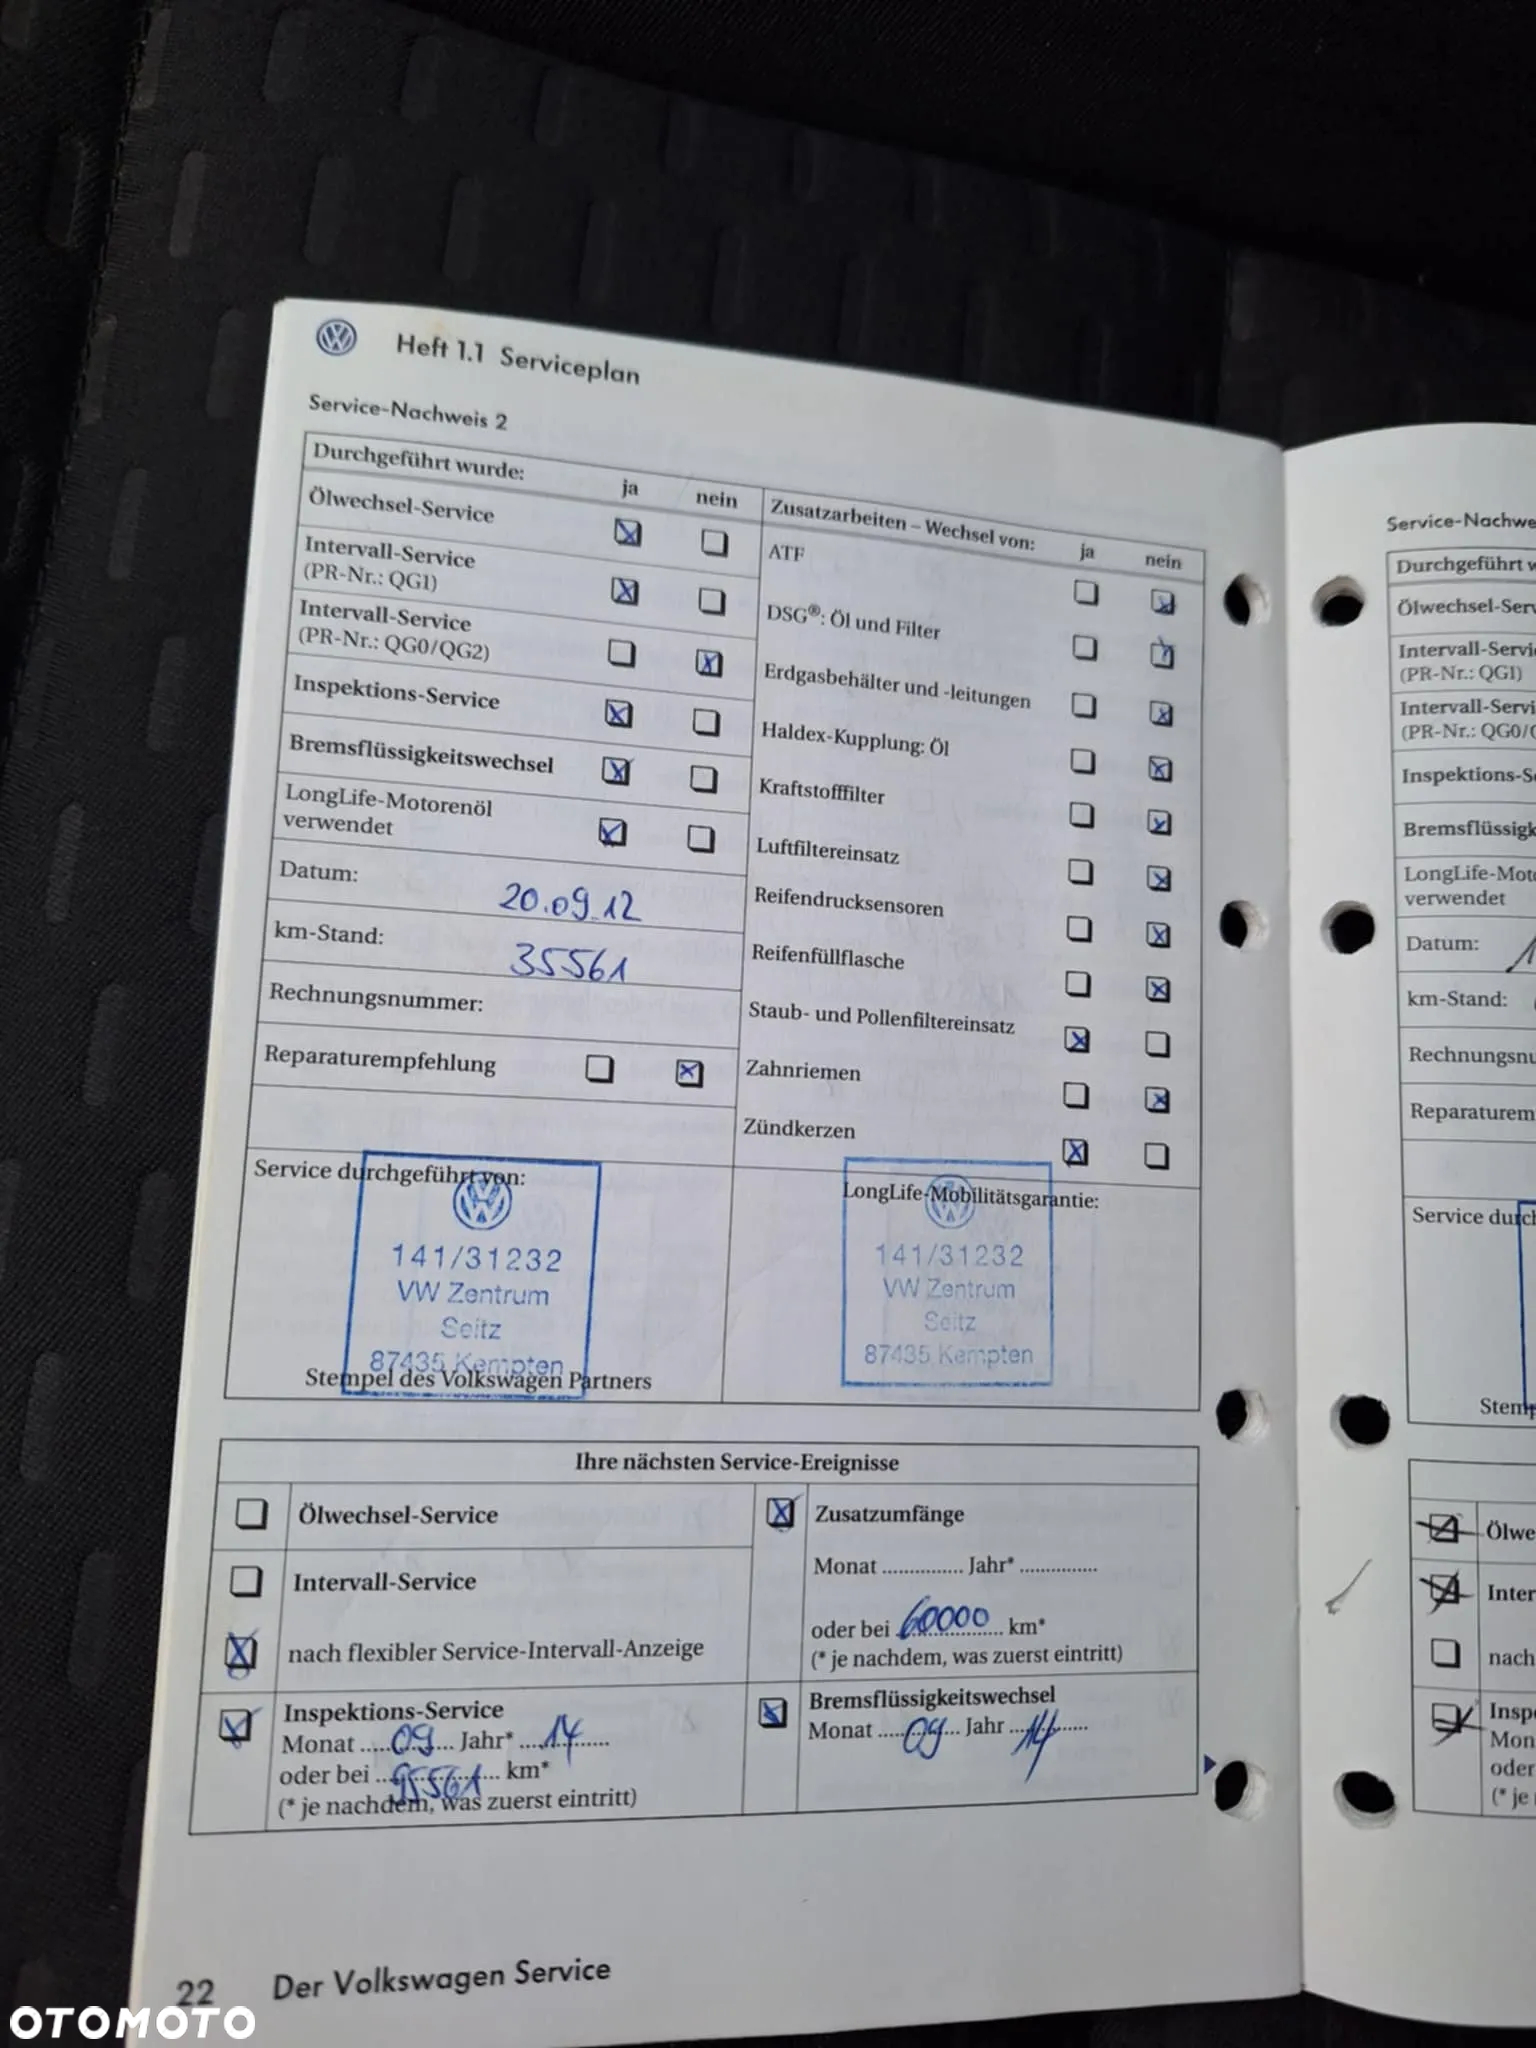 Heft 1.1 Serviceplan
Service-Nachweis 2
Durchgeführt wurde: ja nein
Ölwechsel-Service
Intervall-Service
(PR-Nr.: QG1)
Intervall-Service
(PR-Nr.: QG0/QG2)
Inspektions-Service
Bremsflüssigkeitswechsel
LongLife-Motorenöl
verwendet
Datum: 20.09.12
km-Stand: 35561
Rechnungsnummer:
Reparaturempfehlung
Zusatzarbeiten – Wechsel von: ja nein
ATF
DSG®: Öl und Filter
Erdgasbehälter und -leitungen
Haldex-Kupplung: Öl
Kraftstofffilter
Luftfiltereinsatz
Reifendrucksensoren
Reifenfüllflasche
Staub- und Pollenfiltereinsatz
Zahnriemen
Zündkerzen
Service durchgeführt von:
141/31232
VW Zentrum
Seitz
87435 Kempten
Stempel des Volkswagen Partners
LongLife-Mobilitätsgarantie:
141/31232
VW Zentrum
Seitz
87435 Kempten
Ihre nächsten Service-Ereignisse
Ölwechsel-Service
Intervall-Service
nach flexibler Service-Intervall-Anzeige
Inspektions-Service
Monat ..... 09 ..... Jahr* ..... 14 .....
oder bei ..... 95561 ..... km*
(* je nachdem, was zuerst eintritt)
Zusatzumfänge
Monat ............... Jahr* ...............
oder bei ..... 60000 ..... km*
(* je nachdem, was zuerst eintritt)
Bremsflüssigkeitswechsel
Monat ..... 09 ..... Jahr ..... 14 .....
22 Der Volkswagen Service
Service-Nachwe
Durchgeführt w
Ölwechsel-Serv
Intervall-Servi
(PR-Nr.: QG1)
Intervall-Servi
(PR-Nr.: QG0/Q
Inspektions-Se
Bremsflüssigk
LongLife-Moto
verwendet
Datum:
km-Stand:
Rechnungsnu
Reparaturem
Service durch
Stemp
Ölwe
Inter
nach
Inspe
Mon
oder
(* je
OTOMOTO